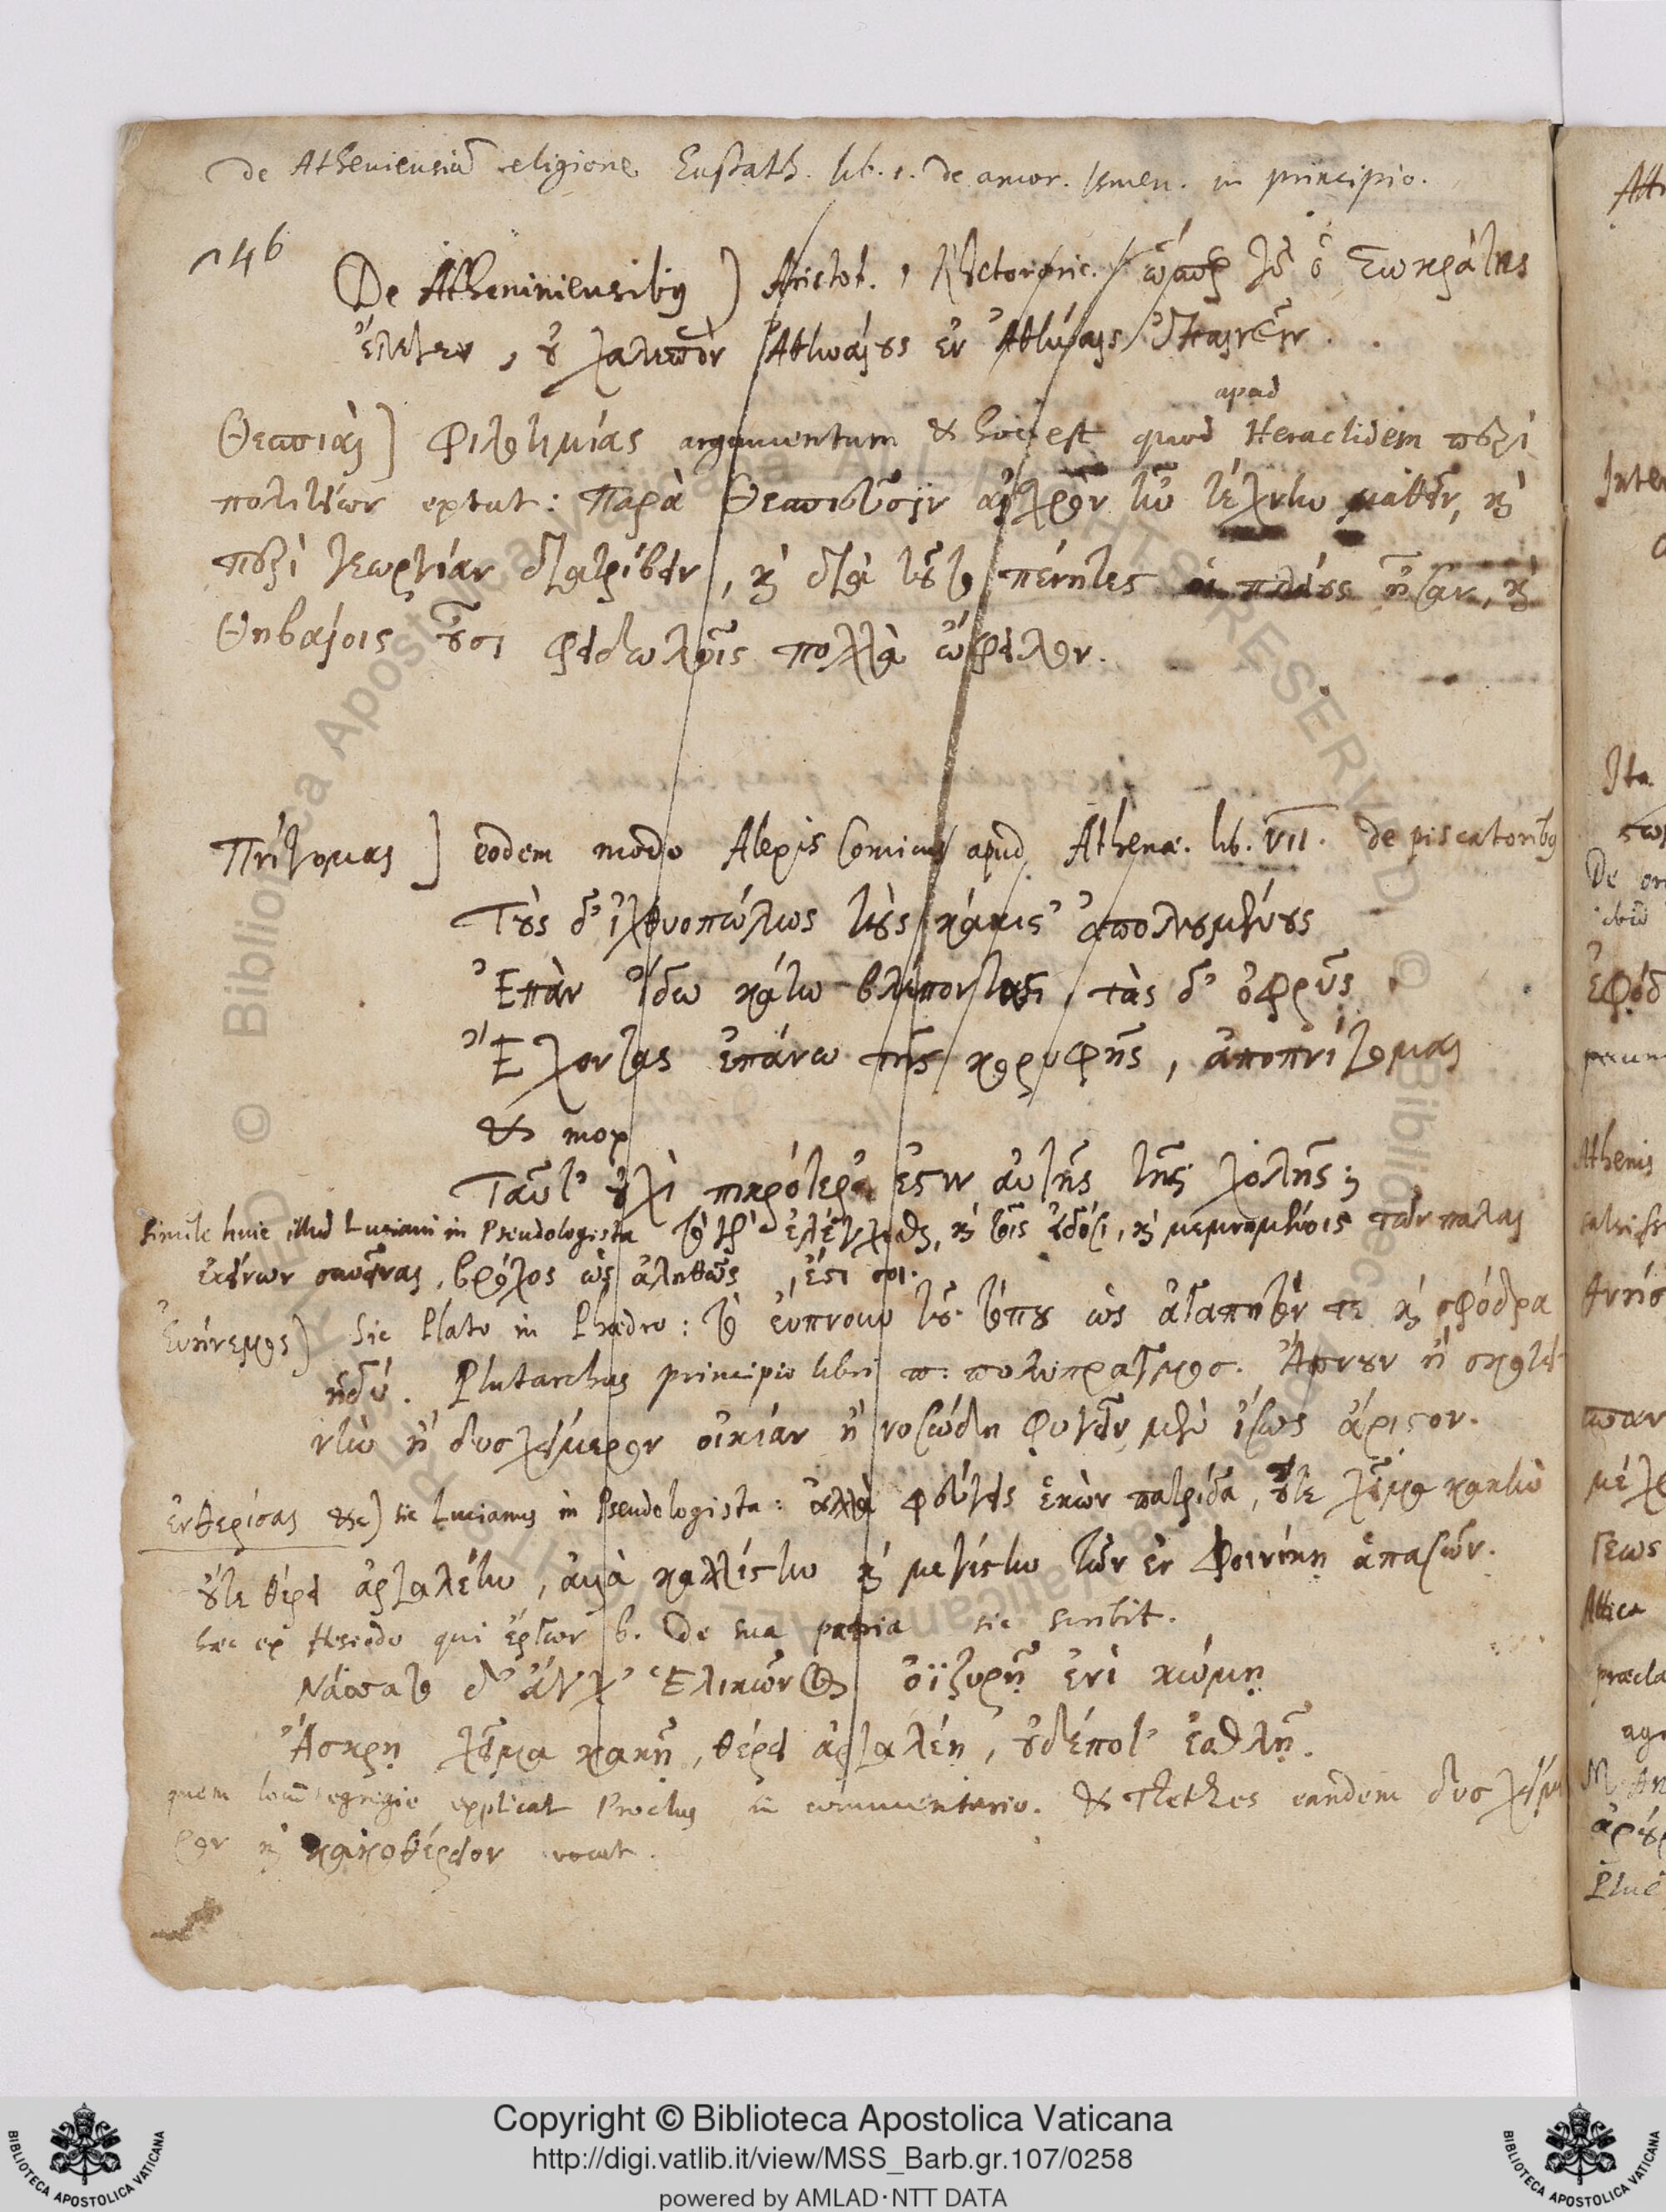 De Atheniensiū religione Eustath. lib. 1. de amor. Ismen. in principio.
146
De Atheniniensibus) Aristot. 1 Rhetoric. ὥσπερ γὰρ ὁ Σωκράτης
ἔλεγεν, οὐ χαλεπὸν Ἀθηναίους ἐν Ἀθήναις ἐπαινεῖν.
apud
Θεσπιαὶ] Φιλοτιμίας argumentum & hoc est quod Heraclidem περὶ
πολιτειῶν extat: Παρὰ Θεσπιεῦσιν αἰσχρὸν ἦν τέχνην μαθεῖν, καὶ
περὶ γεωργίαν διατρίβειν, καὶ διὰ τοῦτο πένητες οἱ πλείους ἦσαν, καὶ
Θηβαίοις οὖσι φειδωλοῖς πολλὰ ὤφειλον.
Πνίγομαι] eodem modo Alexis Comicus apud Athenæ. lib. VII. de piscatoribus
Τοὺς δ' ἰχθυοπώλως τοὺς κάκιστ' ἀπολουμένους
Ἐπὰν ἴδω κάτω βλέποντας, τὰς δ' ὀφρῦς
Ἔχοντας ἐπάνω τῆς κορυφῆς, ἀποπνίγομαι
& mox
Ταῦτ' οὐχὶ πικρότερα ἐστιν αὐτῆς τῆς χολῆς;
Simile huic illud Luciani in Pseudologista καὶ τοῖς εἰδόσι, καὶ μεμνημένοις τῶν πάλαι
ἐκείνων βρόχος ὡς ἀληθῶς, ἐστί σοι.
Εὐήνεμος) Sic Plato in Phædro: τὸ εὔπνουν τοῦ τόπου ὡς ἀγαπητόν τε καὶ σφόδρα
ἡδύ. Plutarchus principio libri π: πολυπραγμοσ. Ἄπνουν ἢ σκοτει-
νὴν ἢ δυσχείμερον οἰκίαν ἢ νοσώδη φυγεῖν μὲν ἴσως ἄριστον.
ἐνθερίσαι &c) sic Lucianus in Pseudologista: ἀλλὰ φεύγεις ἑκὼν πατρίδα, οὔτε χεῖμα κακὴν
οὔτε θέρει ἀργαλέην, ἀλλὰ καλλίστην καὶ μεγίστην τῶν ἐν Φοινίκῃ ἁπασῶν.
hæc ex Hesiodo qui ἔργων β. de sua patria sic scribit.
Νάσσατο δ' ἄγχ' Ἑλικῶνος ὀϊζυρῇ ἐνὶ κώμῃ
Ἄσκρῃ χεῖμα κακῇ, θέρει ἀργαλέῃ, οὐδέποτ' ἐσθλῇ.
quem locū egregie explicat Proclus in commentario. & Tzetzes eandem δυσχείμε
ρον καὶ κακοθέρειον vocat.
Copyright © Biblioteca Apostolica Vaticana
http://digi.vatlib.it/view/MSS_Barb.gr.107/0258
powered by AMLAD·NTT DATA
BIBLIOTECA APOSTOLICA VATICANA
BIBLIOTECA APOSTOLICA VATICANA